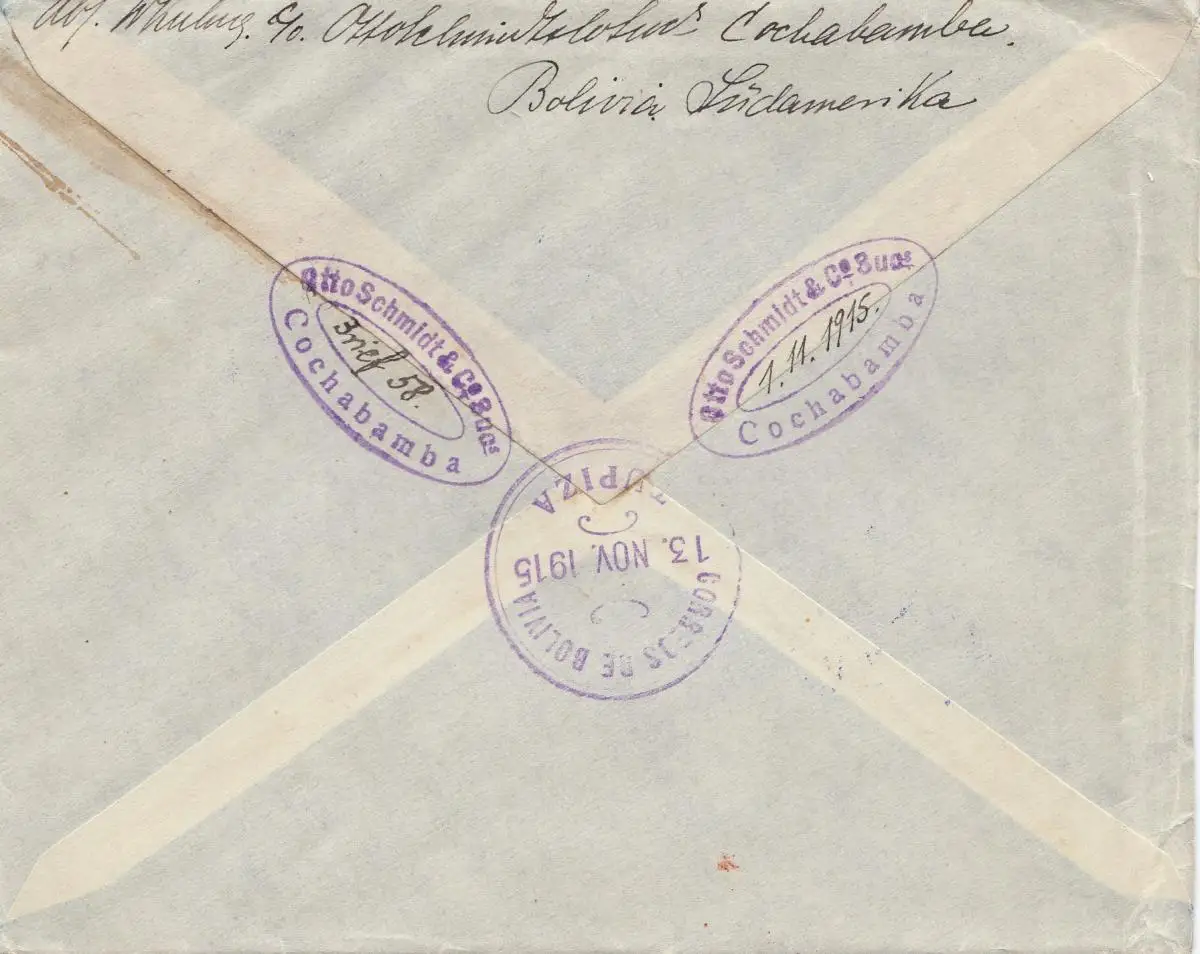 Abs. c/o. Otto Schmidt & Co Sucs Cochabamba.
Bolivia, Südamerika
Otto Schmidt & Co. Sucs
Brief 58.
Cochabamba
Otto Schmidt & Co. Sucs
1.11.1915.
Cochabamba
TUPIZA
13. NOV. 1915
CORREOS DE BOLIVIA